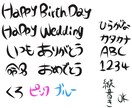 Happy Birth Day
Happy Wedding
いつも ありがとう
命名 おめでとう
くろ ピンク ブルー
ひらがな
カタカナ
ABC
1234
絵書き